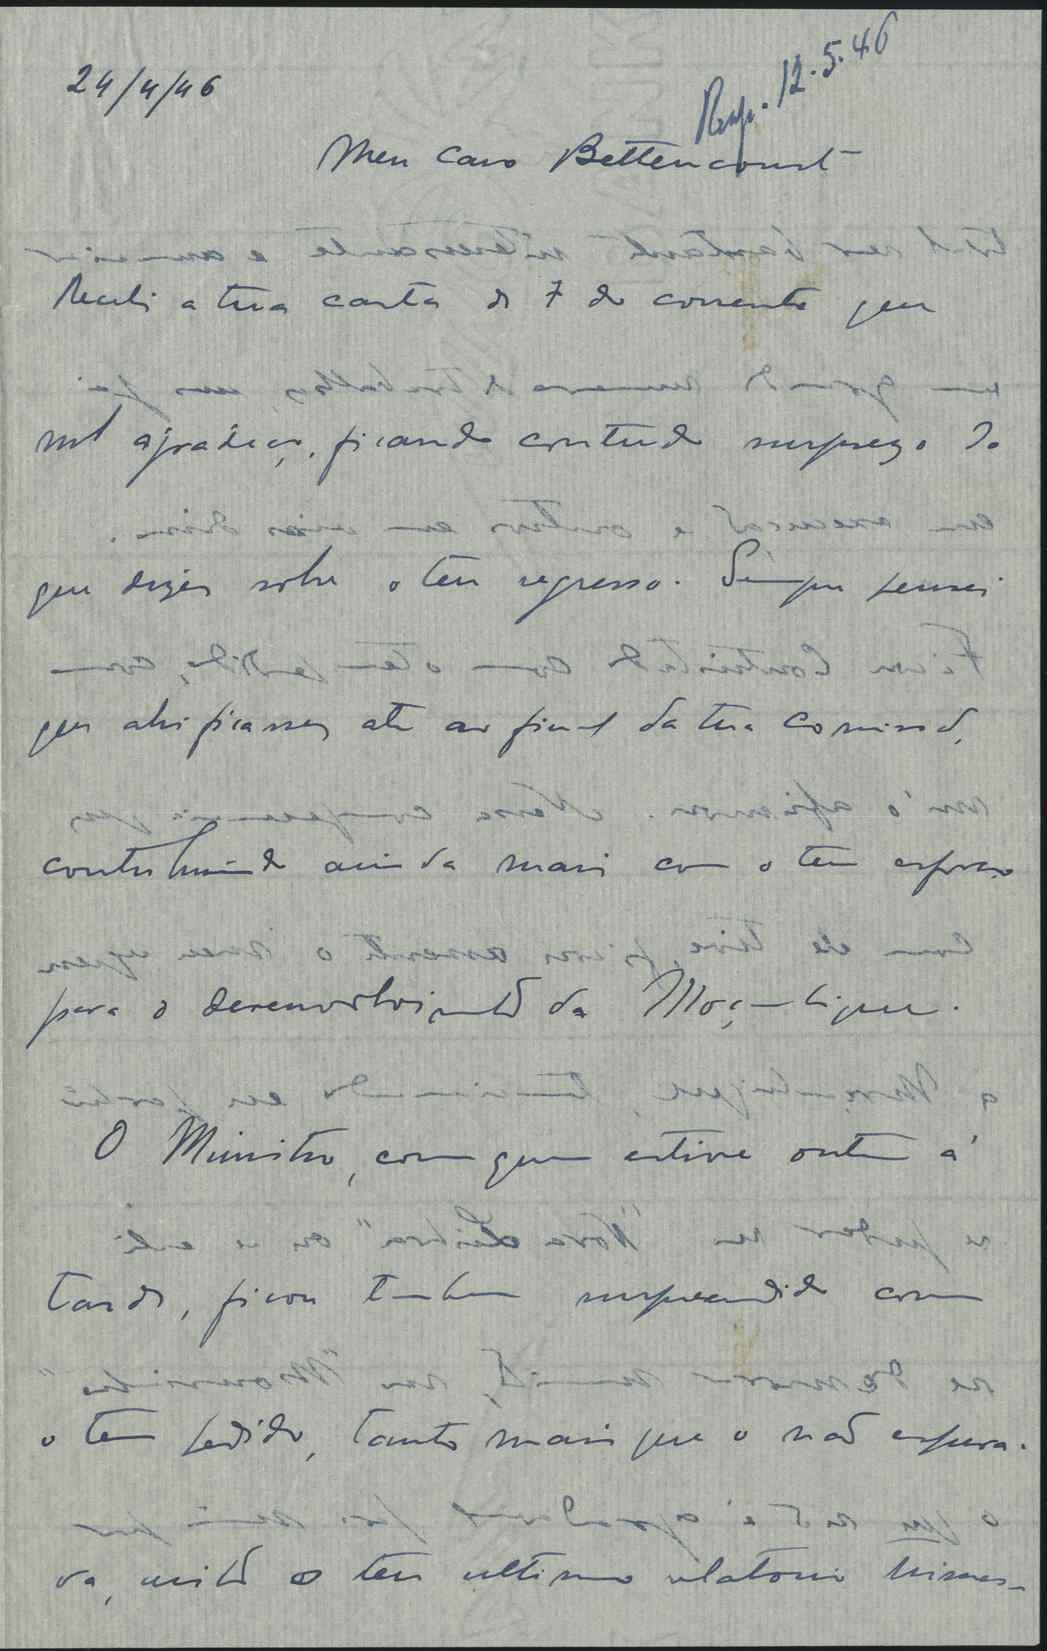 24/4/46
Resp. 12.5.46
Meu caro Bettencourt
Recebi a tua carta de 7 do corrente que
mt agradeço, ficando contudo surpreso do
que dizes sobre o teu regresso. Sempre pensei
que ahi ficasses até ao final da tua comissão,
contribuindo ainda mais com o teu esforço
para o desenvolvimento da Moçambique.
O Ministro, com quem estive ontem á
tarde, ficou tambem surpreendido com
o teu pedido, tanto mais que o não espera-
va, visto o teu ultimo relatorio trimes-